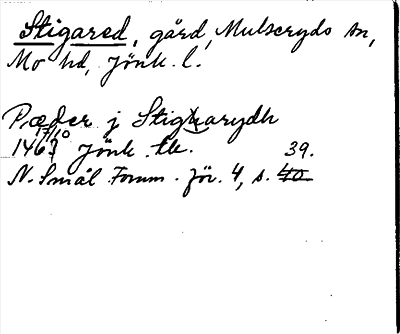 Stigared, gård, Mulseryds sn,
Mo hd, Jönk. l.
Pæder j Stigxarydh
17/10
1467 Jönk. tb.
39.
N. Smål. Fornm. för. 4, s. 40